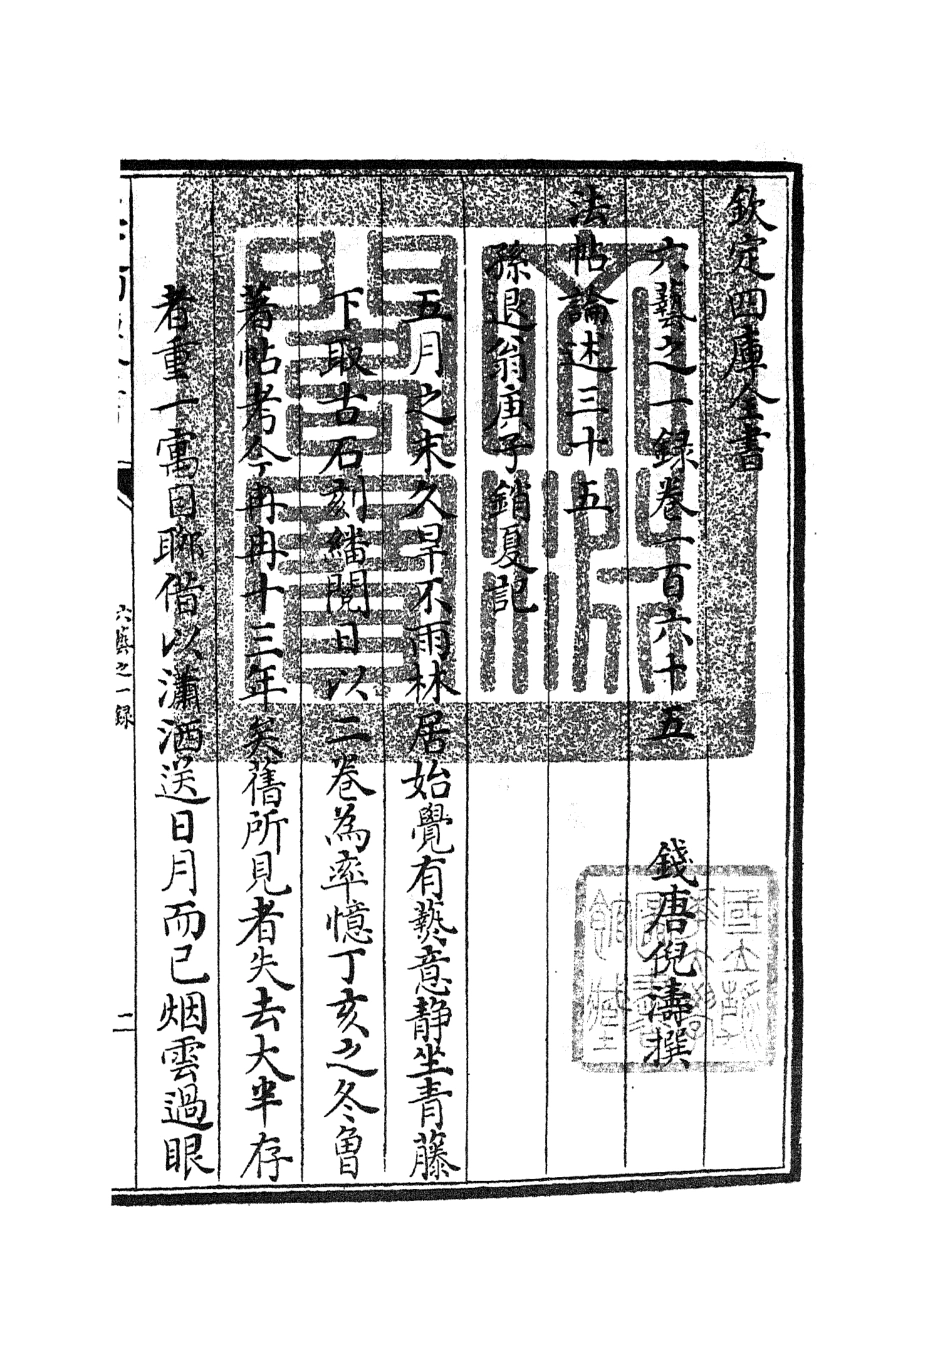 欽定四庫全書
六藝之一錄卷一百六十五
錢唐倪濤撰
法帖論述三十五
孫退翁庚子銷夏記
五月之末久旱不雨林居始覺有藝意靜坐青藤
下取古石刻繙閱日以二巻為率憶丁亥之冬魯
著帖考今再冉十三年矣舊所見者失去大半存
者重一寓目聊借以瀟洒送日月而已烟雲過眼
六藝之一録
二